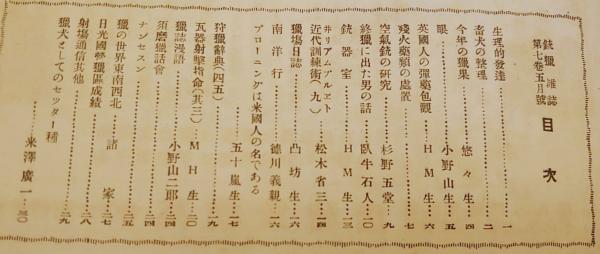 銃獵雜誌
第七卷五月號
目次
生理的發達……一
畜犬の整理……二
今年の獵果……悠々生……四
眼……小野山生……五
英國人の彈藥包觀……HM生……六
殘火藥類の處置……七
空氣銃の研究……杉野五堂……九
終獵に出た男の話……臥牛石人……一〇
銃器室……HM生……一三
ヰリアムアルヱト
近代訓練術(九)……松木省三……一四
獵場日誌……凸坊生……一六
南洋行……德川義親……一六
ブローニングは米國人の名である
……五十嵐生……一七
狩獵辭典(四五)……一九
五器射擊指命(其三)……MH生……二〇
獵誌漫語……小野山二郎……二四
須磨獵話會……二四
ナンセスン……二五
獵の世界東南西北……諸家……二七
日光國營獵區成績……二七
射場通信其他……二八
獵犬としてのセッター種……二九
……米澤廣一……三〇